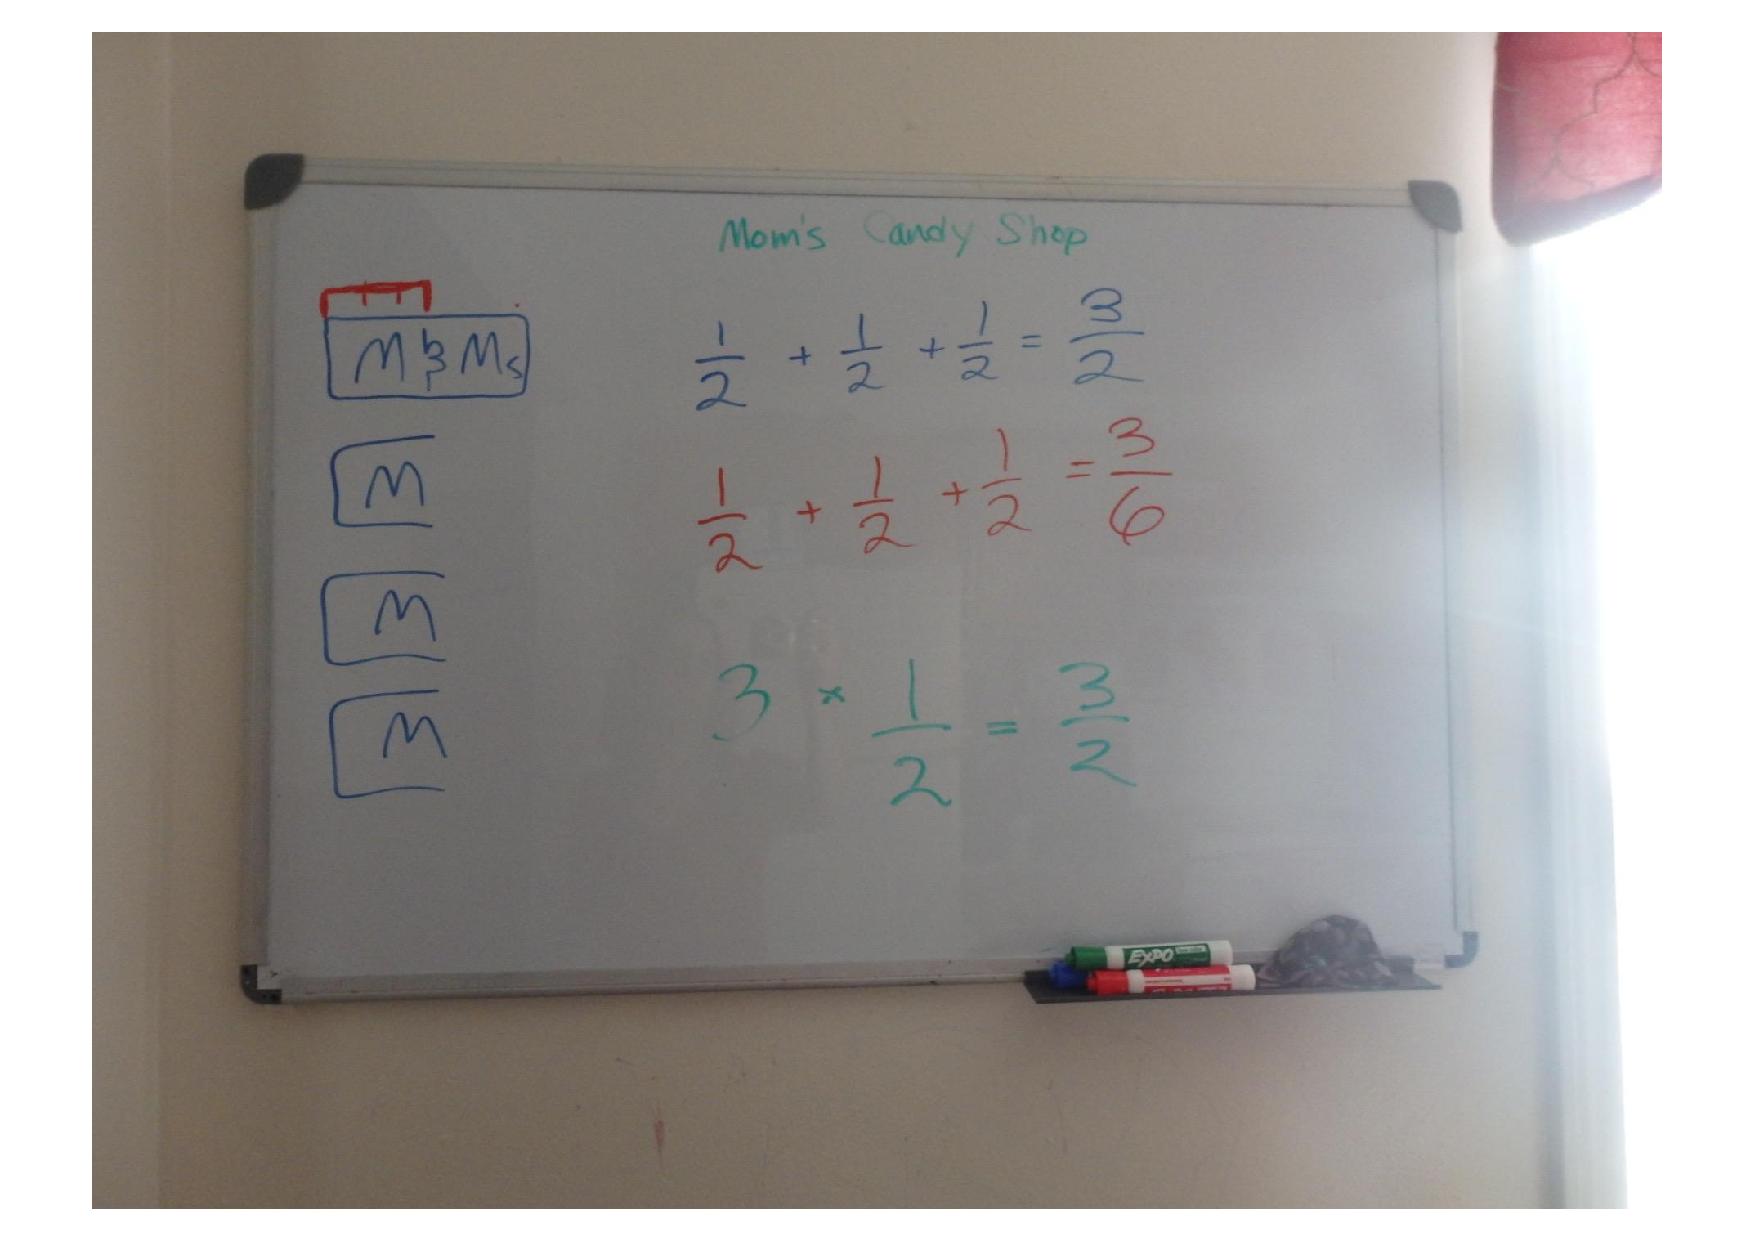 Mom's Candy Shop
M&Ms
1/2 + 1/2 + 1/2 = 3/2
M
1/2 + 1/2 + 1/2 = 3/6
M
M
3 × 1/2 = 3/2
EXPO